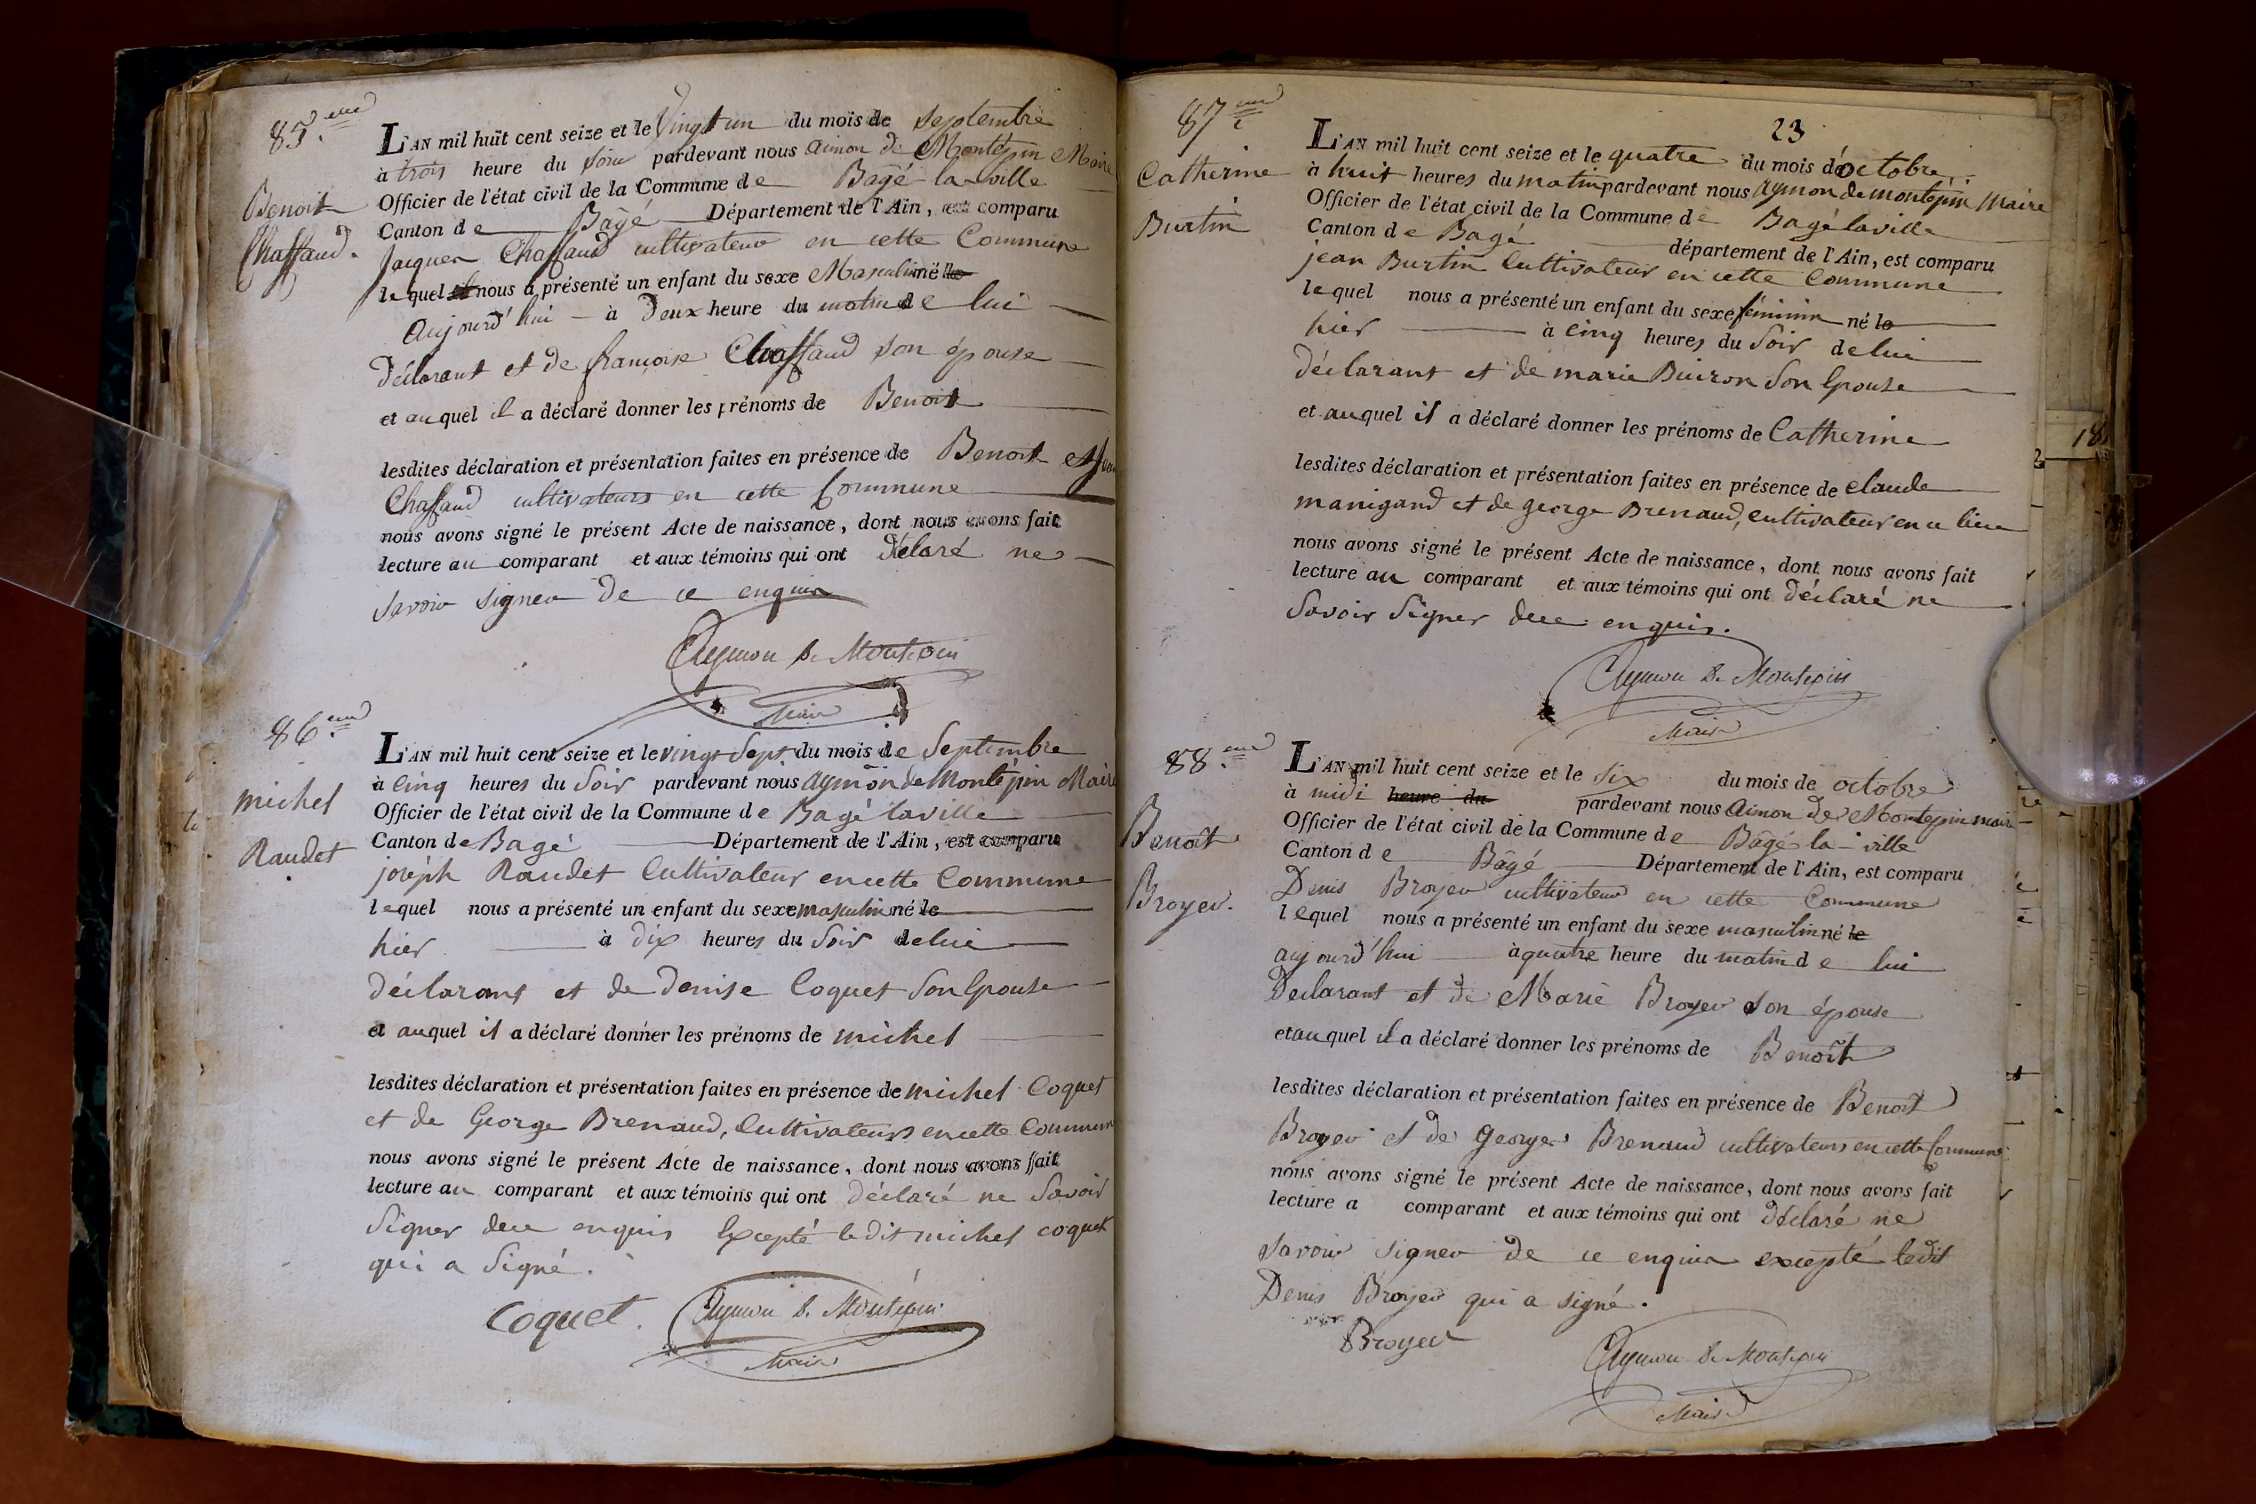 85.eme
Benoit
Chaffaud.
L'AN mil huit cent seize et le Vingt un du mois de septembre
à trois heure du soir pardevant nous aimon de Montépin Maire
Officier de l'état civil de la Commune de Bagé la ville
Canton de Bagé Département de l'Ain, est comparu
Jacques Chaffaud cultivateur en cette Commune
lequel nous a présenté un enfant du sexe Masculin né le
aujourd'hui à Deux heure du matin de lui
Déclarant et de françoise Chaffaud son épouse
et auquel il a déclaré donner les prénoms de Benoit
lesdites déclaration et présentation faites en présence de Benoit et
Chaffaud cultivateurs en cette Commune
nous avons signé le présent Acte de naissance, dont nous avons fait
lecture au comparant et aux témoins qui ont déclaré ne
savoir signer de ce enquis
Aymon de Montépin
Maire
86.eme
michel
Raudet
L'AN mil huit cent seize et le vingt Sept du mois de Septembre
à Cinq heures du Soir pardevant nous aymon de Montépin Maire
Officier de l'état civil de la Commune de Bagé laville
Canton de Bagé Département de l'Ain, est comparu
joséph Raudet Cultivateur en cette Commune
lequel nous a présenté un enfant du sexe masculin né le
hier à dix heures du Soir de lui
déclarant et de Denise Coquet Son Epouse
et auquel il a déclaré donner les prénoms de michel
lesdites déclaration et présentation faites en présence de michel Coquet
et de George Brenaud, Cultivateurs en cette Commune
nous avons signé le présent Acte de naissance, dont nous avons fait
lecture au comparant et aux témoins qui ont déclaré ne Savoir
Signer de ce enquis Excepté ledit michel coquet
qui a Signé.
Coquet.
Aymon de Montépin
Maire
23
87.eme
Catherine
Burtin
L'AN mil huit cent seize et le quatre du mois d'octobre
à huit heures du matin pardevant nous aymon de montépin Maire
Officier de l'état civil de la Commune de Bagé laville
Canton de Bagé département de l'Ain, est comparu
jean Burtin Cultivateur en cette Commune
lequel nous a présenté un enfant du sexe féminin né le
hier à cinq heures du Soir de lui
déclarant et de marie Buiron Son Epouse
et auquel il a déclaré donner les prénoms de Catherine
lesdites déclaration et présentation faites en présence de claude
manigand et de george Brenaud, cultivateur en ce lieu
nous avons signé le présent Acte de naissance, dont nous avons fait
lecture au comparant et aux témoins qui ont déclaré ne
Savoir Signer de ce enquis.
Aymon de Montépin
Maire
88.eme
Benoît
Broyer.
L'AN mil huit cent seize et le six du mois de octobre
à midi heure du pardevant nous aimon de Montepin maire
Officier de l'état civil de la Commune de Bagé la ville
Canton de Bâgé Département de l'Ain, est comparu
Denis Broyer cultivateur en cette Commune
lequel nous a présenté un enfant du sexe masculin né le
aujourd'hui à quatre heure du matin de lui
Déclarant et de Marie Broyer son épouse
et auquel il a déclaré donner les prénoms de Benoît
lesdites déclaration et présentation faites en présence de Benoit
Broyer et de George Brenaud cultivateurs en cette Commune
nous avons signé le présent Acte de naissance, dont nous avons fait
lecture a comparant et aux témoins qui ont déclaré ne
savoir signer de ce enquis excepté ledit
Denis Broyer qui a signé.
Broyer
Aymon de Montépin
Maire
18